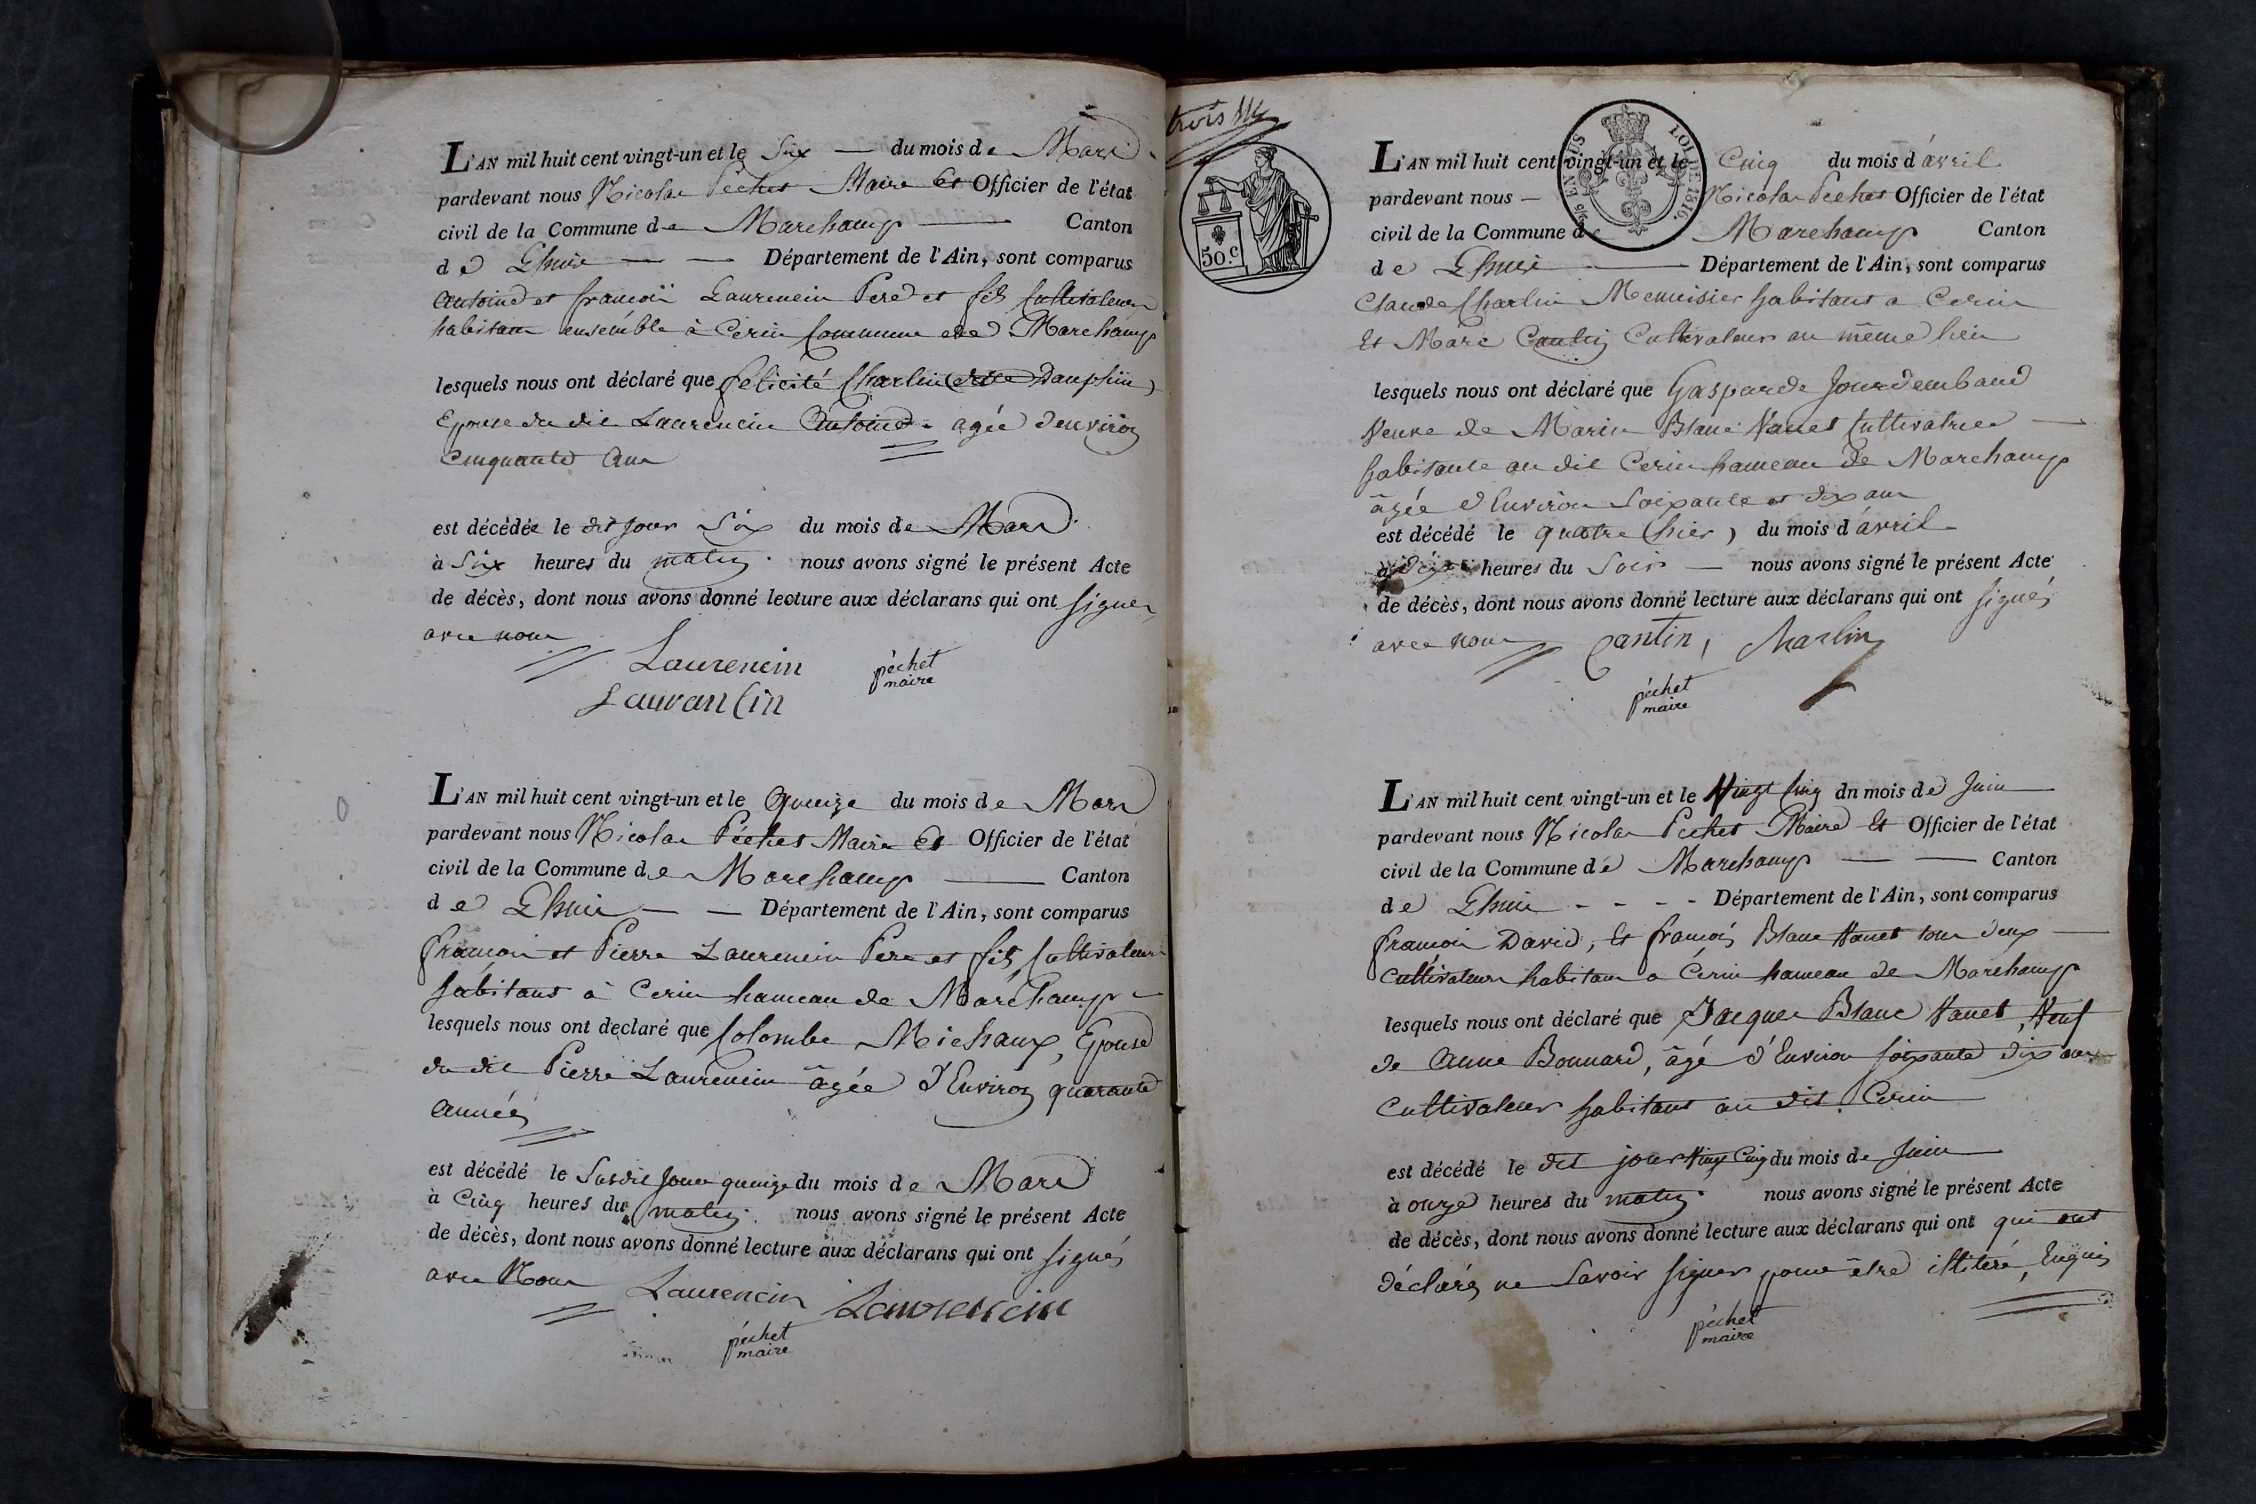 L'AN mil huit cent vingt-un et le Six — du mois de Mars
pardevant nous Nicolas Péchet Maire Et Officier de l'état
civil de la Commune de Marchamp — Canton
de Lhuis — — Département de l'Ain, sont comparus
Antoine et françois Laurencin Pere et fils Cultivateurs
habitans ensemble à Cerin Commune de Marchamp
lesquels nous ont déclaré que félicité Charlin (dite Dauphin)
Epouse du dit Laurencin Antoine agée d'environ
Cinquante Ans
est décédée le dit jour Six du mois de Mars
à Six heures du matin nous avons signé le présent Acte
de décès, dont nous avons donné lecture aux déclarans qui ont signer
avec nous
Laurencin
péchet
maire
Lauran Cin
L'AN mil huit cent vingt-un et le Quinze du mois de Mars
pardevant nous Nicolas Péchet Maire Et Officier de l'état
civil de la Commune de Marchamp — Canton
de Lhuis — — Département de l'Ain, sont comparus
françois et Pierre Laurencin Pere et fils Cultivateurs
habitans à Cerin hameau de Marchamp
lesquels nous ont déclaré que Colombe Michaux, Epouse
du dit Pierre Laurencin âgée d'Environ quarante
années
est décédé le Susdit jour quinze du mois de Mars
à Cinq heures du matin nous avons signé le présent Acte
de décès, dont nous avons donné lecture aux déclarans qui ont signés
avec Nous
Laurencin Laurencin
péchet
maire
trois
50.C
EN SUS
LOI DE 1816.
L'AN mil huit cent vingt-un et le Cinq du mois d'avril
pardevant nous — Nicolas Péchet Officier de l'état
civil de la Commune de Marchamp Canton
de Lhuis — Département de l'Ain, sont comparus
Claude Charlin Menuisier habitant a Cerin
Et Marc Cantin Cultivateur au même lieu
lesquels nous ont déclaré que Gasparde Jourdembaud
Veuve de Marin Blanc Nanet Cultivatrice —
habitante au dit Cerin hameau de Marchamp
âgée d'Environ Soixante et dix ans
est décédé le quatre (hier) du mois d'avril
à dix heures du Soir — nous avons signé le présent Acte
de décès, dont nous avons donné lecture aux déclarans qui ont signés
avec nous Cantin, Charlin
péchet
maire
L'AN mil huit cent vingt-un et le Vingt Cinq du mois de Juin
pardevant nous Nicolas Péchet Maire Et Officier de l'état
civil de la Commune de Marchamp — — Canton
de Lhuis - - - - Département de l'Ain, sont comparus
françois David, Et françois Blanc Nanet tous deux —
cultivateurs habitans a Cerin hameau de Marchamp
lesquels nous ont déclaré que Jacques Blanc Nanet, Veuf
de Anne Bonnard, âgé d'Environ soixante dix ans
Cultivateur habitant au dit Cerin
est décédé le dit jour Vingt Cinq du mois de Juin
à onze heures du matin nous avons signé le présent Acte
de décès, dont nous avons donné lecture aux déclarans qui ont qui ont
déclarés ne Savoir signer pour être illiteré, Enquis
péchet
maire